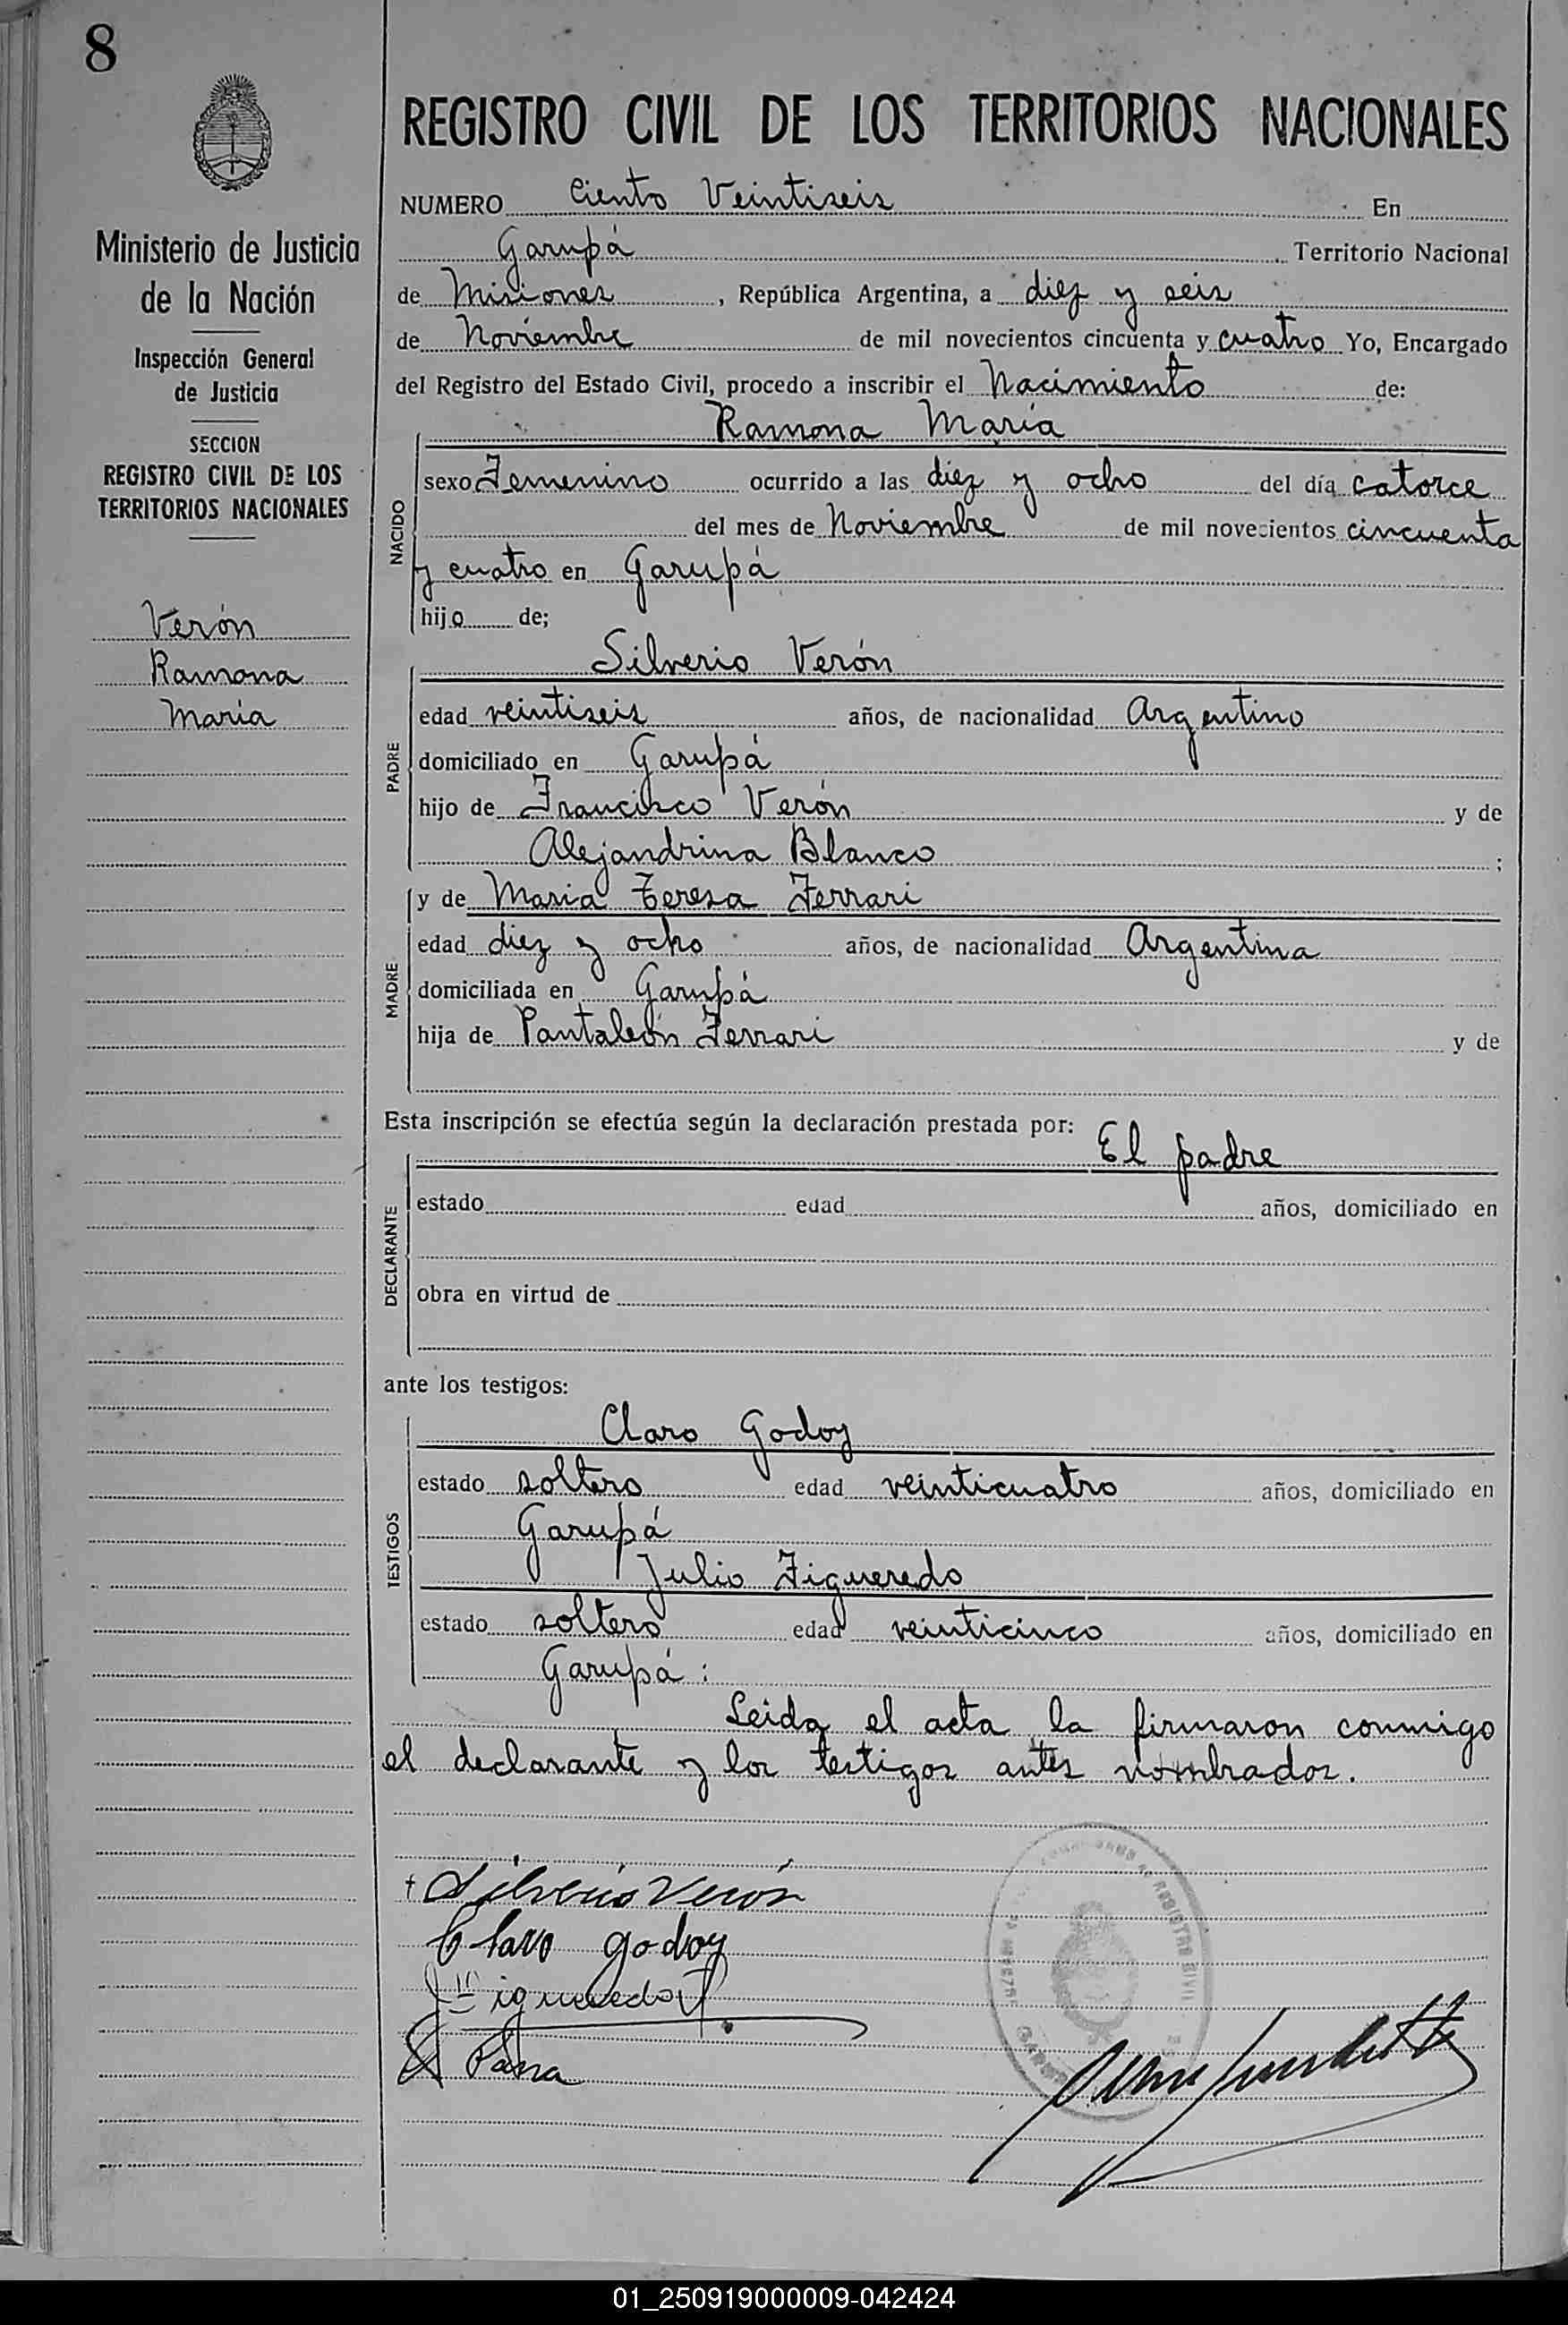 8
REGISTRO CIVIL DE LOS TERRITORIOS NACIONALES
Ministerio de Justicia
de la Nación
Inspección General
de Justicia
SECCION
REGISTRO CIVIL DE LOS
TERRITORIOS NACIONALES
Verón
Ramona
María
NUMERO Ciento Veintiseis En
Garupá Territorio Nacional
de Misiones, República Argentina, a diez y seis
de Noviembre de mil novecientos cincuenta y cuatro Yo, Encargado
del Registro del Estado Civil, procedo a inscribir el Nacimiento de:
Ramona María
NACIDO
sexo Femenino ocurrido a las diez y ocho del día catorce
del mes de Noviembre de mil novecientos cincuenta
y cuatro en Garupá
hijo de;
Silverio Verón
PADRE
edad veintiseis años, de nacionalidad Argentino
domiciliado en Garupá
hijo de Francisco Verón y de
Alejandrina Blanco ;
y de María Teresa Ferrari
MADRE
edad diez y ocho años, de nacionalidad Argentina
domiciliada en Garupá
hija de Pantaleón Ferrari y de
Esta inscripción se efectúa según la declaración prestada por:
El padre
DECLARANTE
estado edad años, domiciliado en
obra en virtud de
ante los testigos:
Claro Godoy
TESTIGOS
estado soltero edad veinticuatro años, domiciliado en
Garupá
Julio Figueredo
estado soltero edad veinticinco años, domiciliado en
Garupá:
Leida el acta la firmaron conmigo
el declarante y los testigos antes nombrados.
Silverio Verón
Claro godoy
Figueredo
REGISTRO CIVIL
01_250919000009-042424